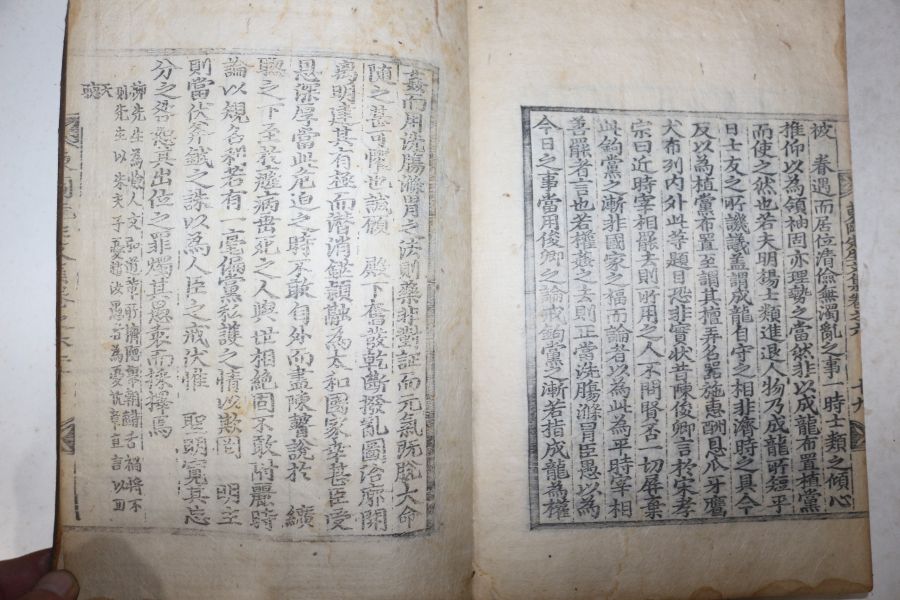 被 眷遇而居位淸儉無濁亂之事一時士類之傾心
推仰以爲領袖固亦理勢之當然非以成龍布置植黨
而使之然也若夫明揚士類進退人物乃成龍所短乎
日士友之所譏議盖謂成龍自守之相非濟時之具今
反以爲植黨布置至謂其擅弄名器施惠酬恩爪牙鷹
犬布列內外此等題目恐非實狀昔陳俊卿言於宋孝
宗曰近時宰相罷去則所用之人不問賢否一切屛棄
此鉤黨之漸非國家之福而論者以爲此爲平時宰相
善罷者言也若權姦之去則正當洗腸滌胃臣愚以爲
今日之事當用俊卿之論戒鉤黨之漸若指成龍爲權
姦而用洗腸滌胃之法則藥非對証而元氣所脫大命
隨之甚可懼也誠願 殿下奮發乾斷撥亂圖治廓開
离明建其有極而潛消 融爲太和國家幸甚臣受
恩深厚當此危迫之時不敢自外而盡陳瞽說於 纊
聰之下至於癃病垂死之人與世相絕固不敢附麗時
論以規名利若有一毫偏黨私護之情以欺罔 明主
則當伏斧鉞之誅以爲人臣之戒伏惟 聖明寬其忘
分之咎恕其出位之罪燭其愚衷而採擇焉
先生爲 人文 道 所 朝 舌禍將不
則先生以朱夫子 爲憂 章直言以回
天聰